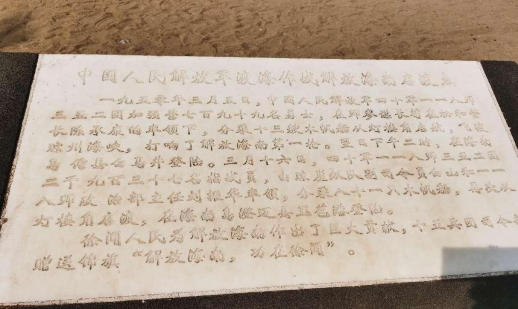 中国人民解放军渡海作战解放海南启渡点
一九五零年三月五日，中国人民解放军四十军一一八师
三五二团加强营七百九十九名勇士，在师参谋长苟在松和营
长陈承康的率领下，分乘十三艘木帆船从灯楼角启航，飞渡
琼州海峡，打响了解放海南第一枪。翌日下午二时，在海南
岛儋县白马井登陆。三月二十六日，四十军一一八师三五二团
二千九百三十七名指战员，由琼崖纵队副司令员马白山和一一
八师政治部主任刘振华率领，分乘八十一只木帆船，再次从
灯楼角启渡，在海南岛澄迈县玉包港登陆。
徐闻人民为解放海南作出了巨大贡献，十五兵团司令部
赠送锦旗“解放海南，功在徐闻”。